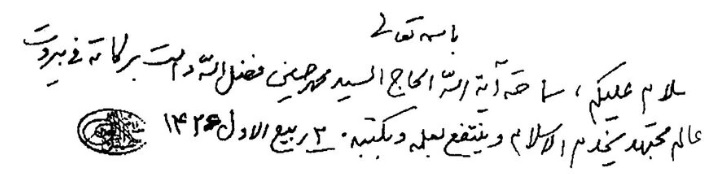 باسمه تعالى
سلام عليكم، سماحة آية الله الحاج السيد محمد حسين فضل الله دامت بركاته في بيروت
عالم مجتهد يخدم الاسلام و ينتفع بعلمه و بكتبه. ٣ ربيع الاول ١۴٢۶